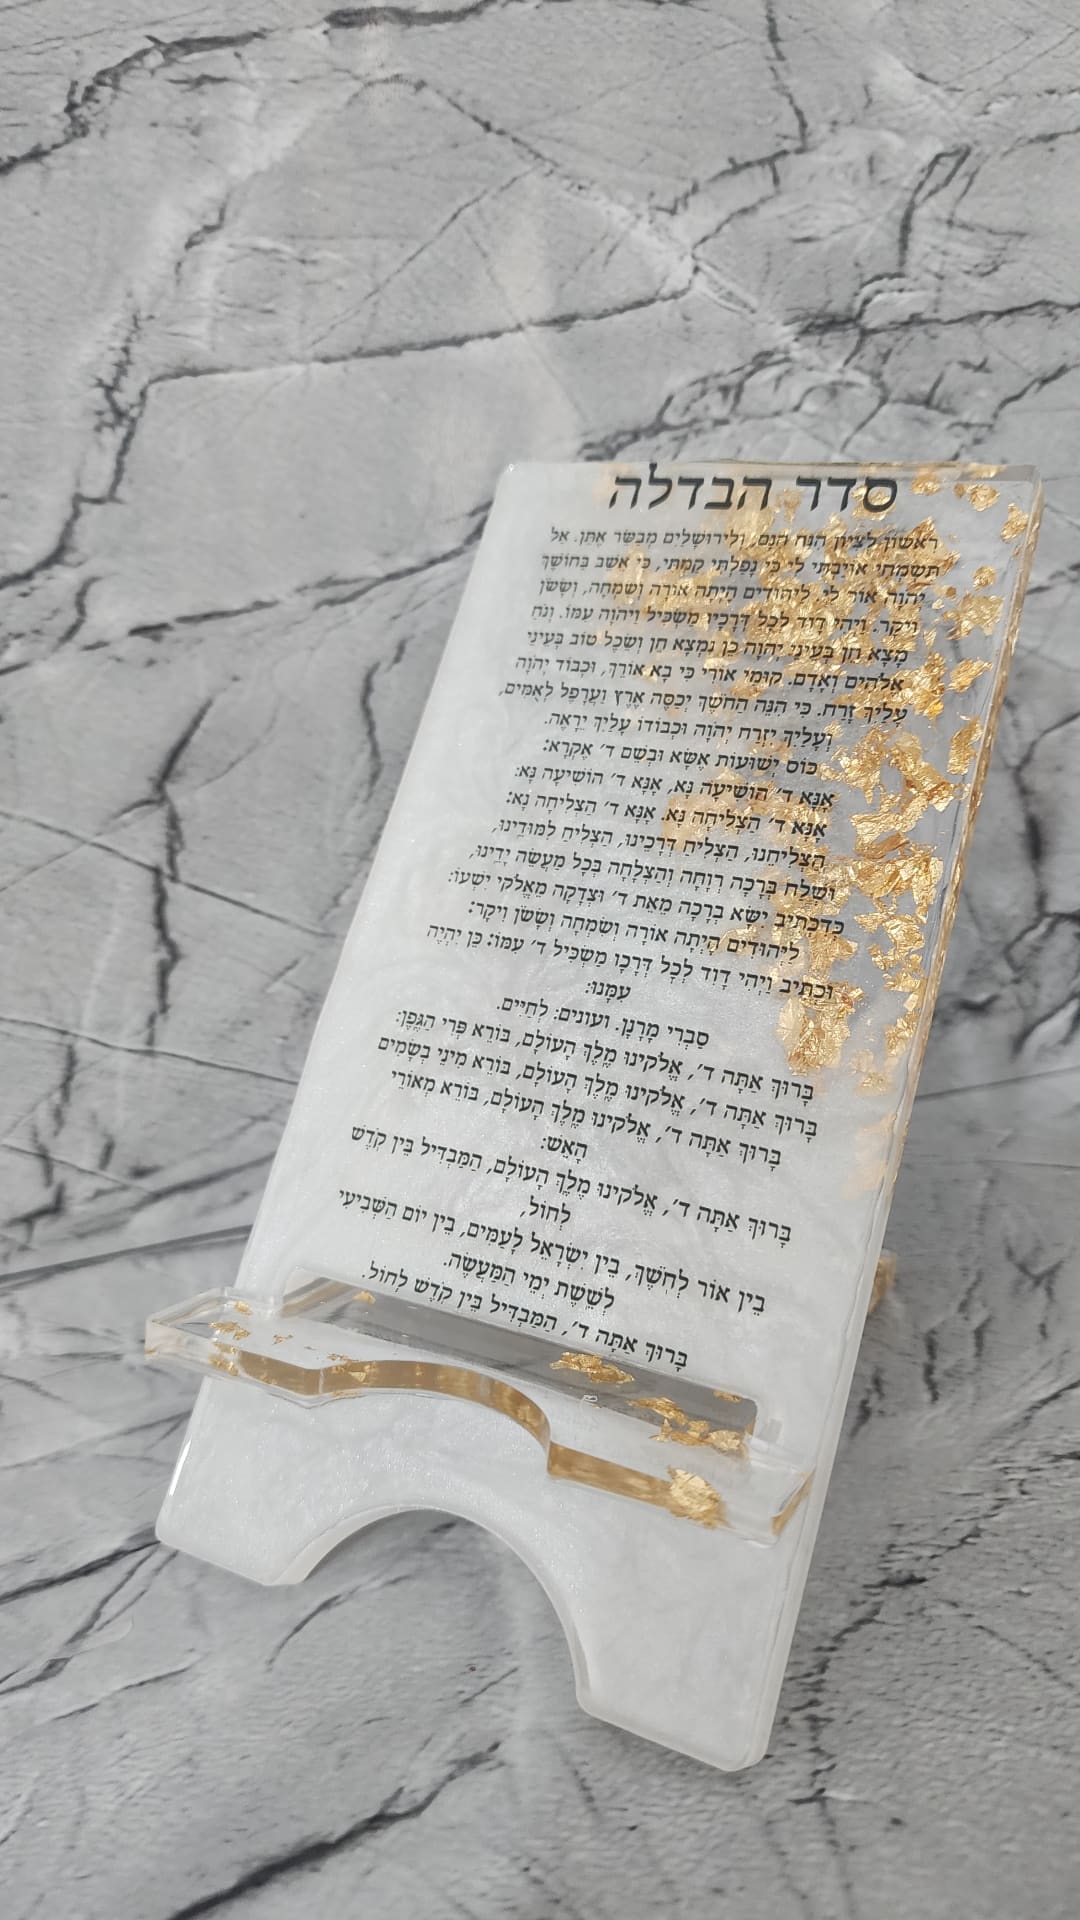 סדר הבדלה
ראשון לציון הנה הנם, ולירושלים מבשר אתן. אל
תשמחי אויבתי לי כי נפלתי קמתי, כי אשב בחושך
יהוה אור לי. ליהודים היתה אורה ושמחה, וששן
ויקר. ויהי דוד לכל דרכיו משכיל ויהוה עמו. ונח
מצא חן בעיני יהוה כן נמצא חן ושכל טוב בעיני
אלהים ואדם. קומי אורי כי בא אורך, וכבוד יהוה
עליך זרח. כי הנה החשך יכסה ארץ וערפל לאמים,
ועליך יזרח יהוה וכבודו עליך יראה.
כּוֹס יְשׁוּעוֹת אֶשָּׂא וּבְשֵׁם ד׳ אֶקְרָא:
אָנָּא ד׳ הוֹשִׁיעָה נָּא, אָנָּא ד׳ הוֹשִׁיעָה נָּא:
אָנָּא ד׳ הַצְלִיחָה נָּא. אָנָּא ד׳ הַצְלִיחָה נָא:
הַצְלִיחֵנוּ, הַצְלִיחַ דְּרָכֵינוּ, הַצְלִיחַ לִמּוּדֵינוּ,
וּשְׁלַח בְּרָכָה רְוָחָה וְהַצְלָחָה בְּכָל מַעֲשֵׂה יָדֵינוּ,
כְּדִכְתִיב יִשָּׂא בְרָכָה מֵאֵת ד׳ וּצְדָקָה מֵאֱלֹקֵי יִשְׁעוֹ:
לַיְּהוּדִים הָיְתָה אוֹרָה וְשִׂמְחָה וְשָׂשׂוֹן וִיקָר:
וּכְתִיב וַיְהִי דָוִד לְכָל דְּרָכָו מַשְׂכִּיל ד׳ עִמּוֹ: כֵּן יִהְיֶה
עִמָּנוּ:
סַבְרִי מָרָנָן. ועונים: לְחַיִּים.
בָּרוּךְ אַתָּה ד׳, אֱלֹקֵינוּ מֶלֶךְ הָעוֹלָם, בּוֹרֵא פְּרִי הַגֶּפֶן:
בָּרוּךְ אַתָּה ד׳, אֱלֹקֵינוּ מֶלֶךְ הָעוֹלָם, בּוֹרֵא מִינֵי בְשָׂמִים
בָּרוּךְ אַתָּה ד׳, אֱלֹקֵינוּ מֶלֶךְ הָעוֹלָם, בּוֹרֵא מְאוֹרֵי
הָאֵשׁ:
בָּרוּךְ אַתָּה ד׳, אֱלֹקֵינוּ מֶלֶךְ הָעוֹלָם, הַמַּבְדִּיל בֵּין קֹדֶשׁ
לְחוֹל,
בֵּין אוֹר לְחֹשֶׁךְ, בֵּין יִשְׂרָאֵל לָעַמִּים, בֵּין יוֹם הַשְּׁבִיעִי
לְשֵׁשֶׁת יְמֵי הַמַּעֲשֶׂה.
בָּרוּךְ אַתָּה ד׳, הַמַּבְדִּיל בֵּין קֹדֶשׁ לְחוֹל.